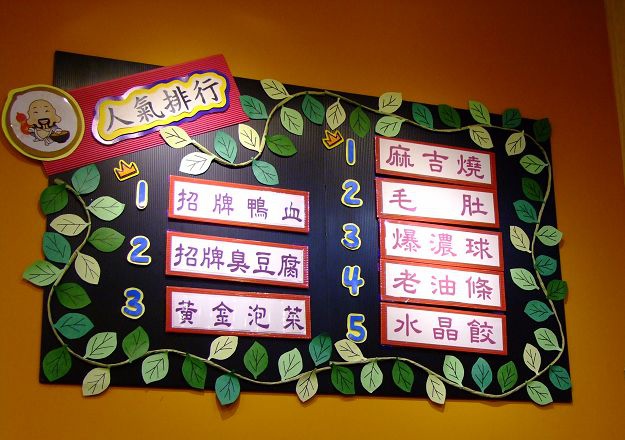 人氣排行
1 招牌鴨血
2 招牌臭豆腐
3 黃金泡菜
1 麻吉燒
2 毛肚
3 爆濃球
4 老油條
5 水晶餃